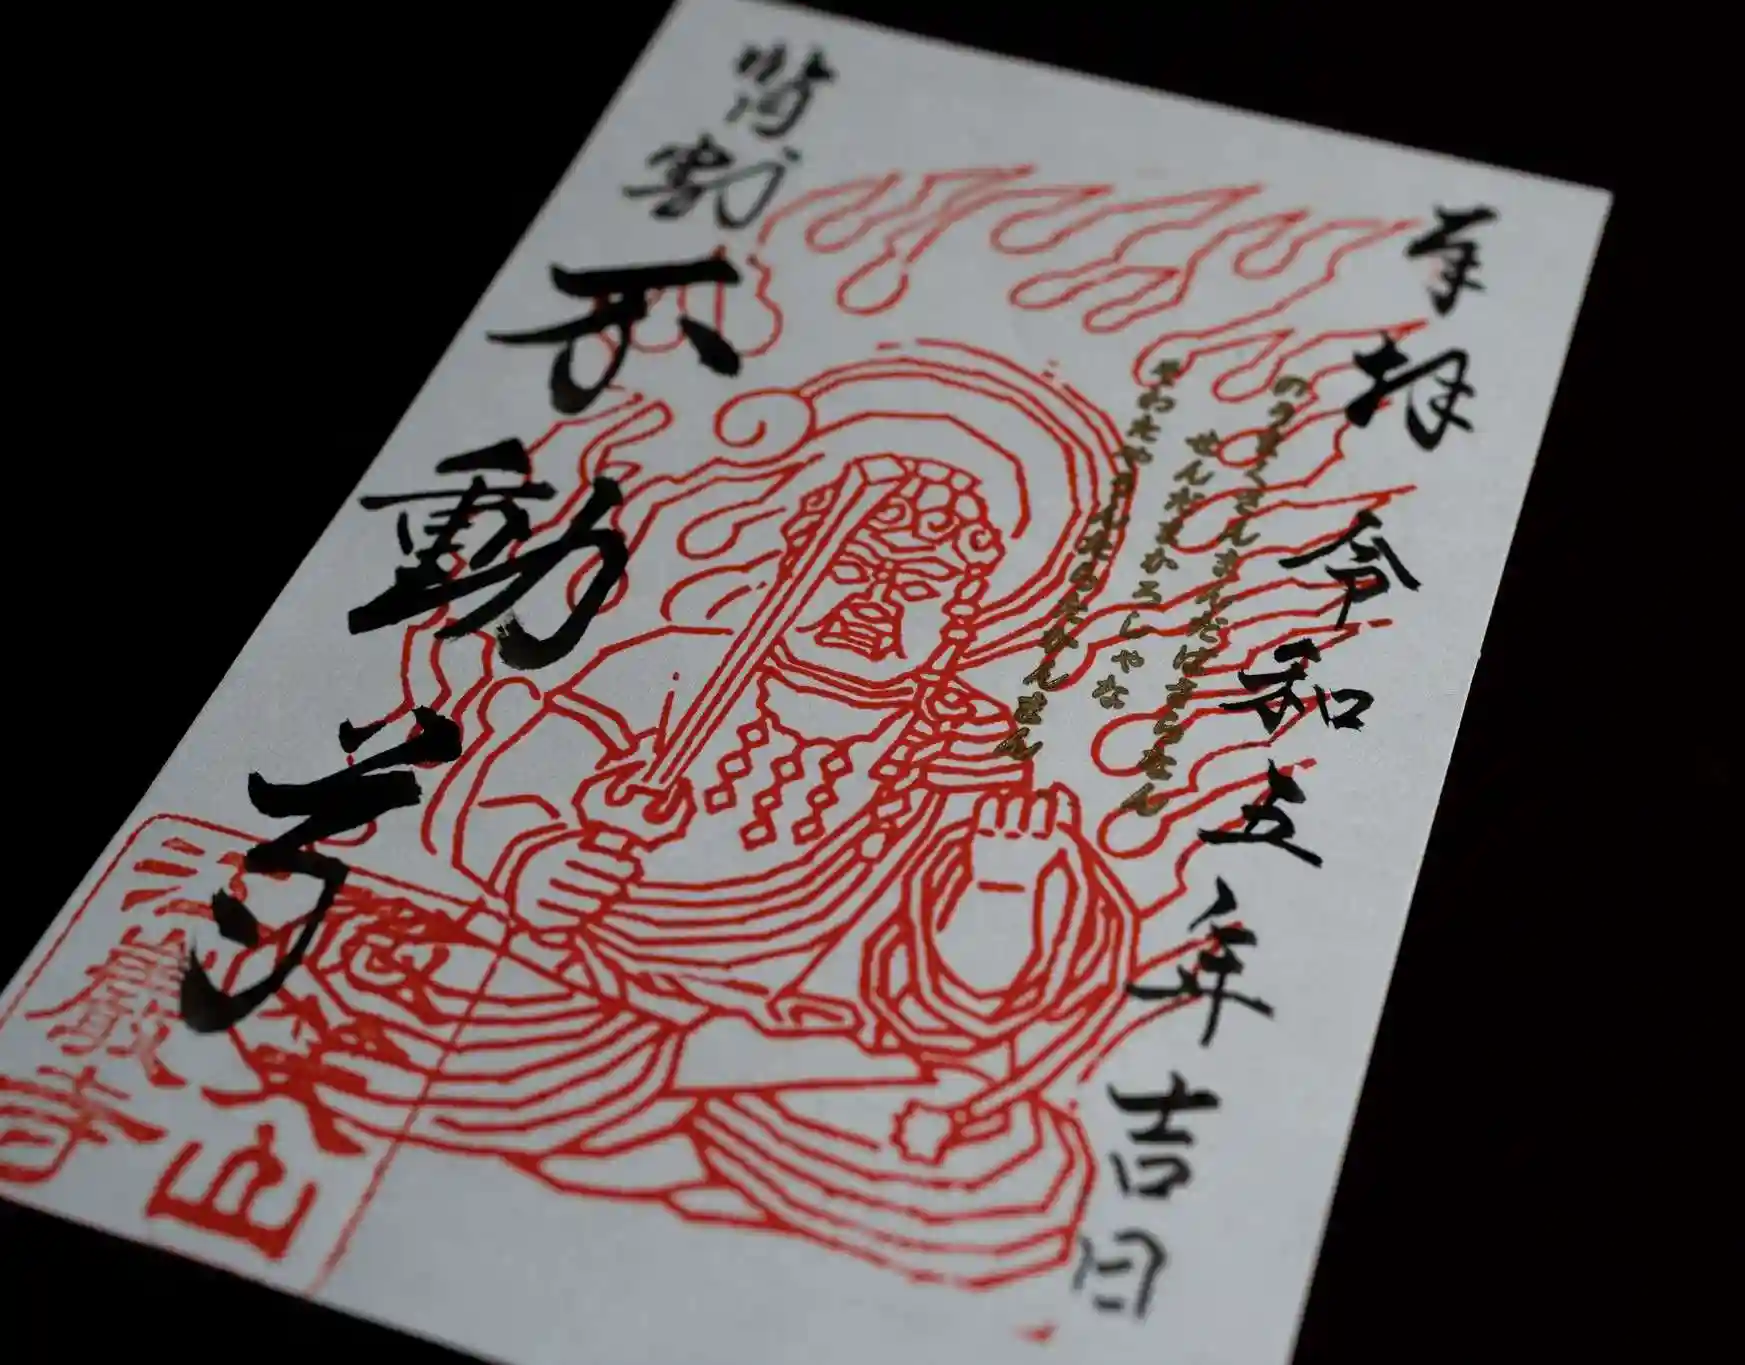 奉拝 令和五年吉日
のうまくさんまんだばさらだん
せんだまかろしゃな
そわたやうんたらたかんまん
背割 不動尊
山
巌寺